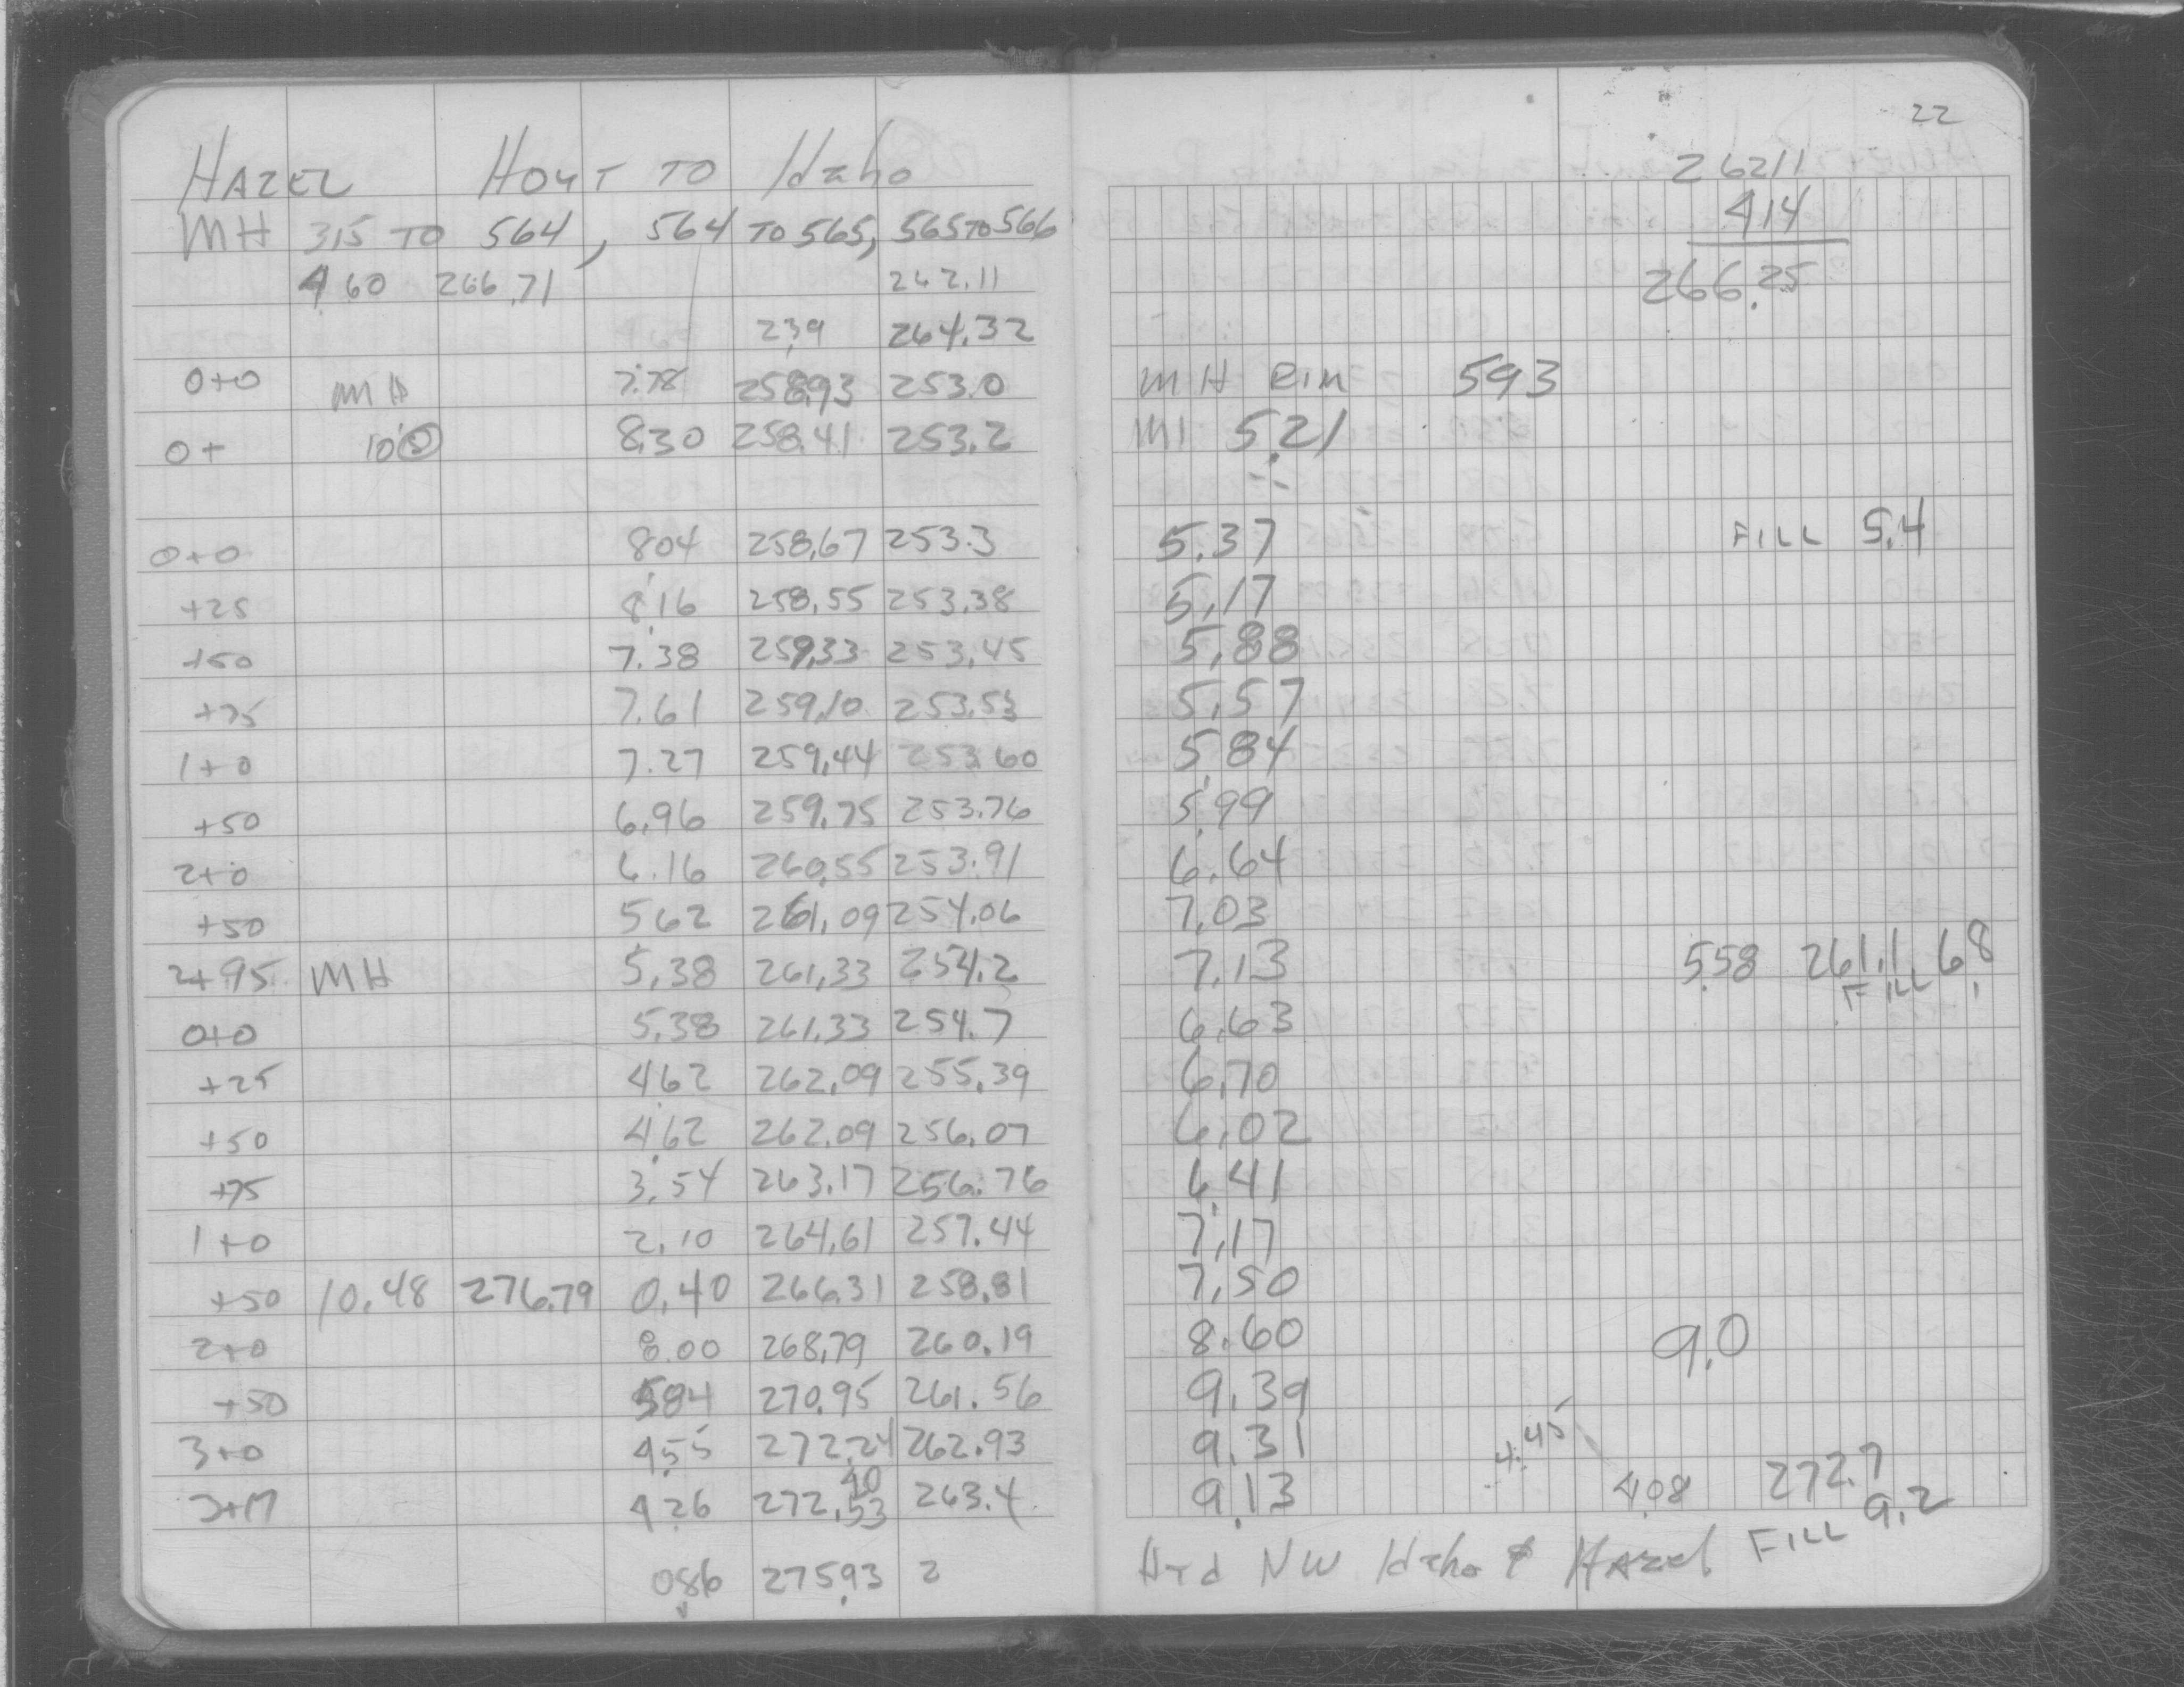 22
HAZEL HOYT TO Idaho
MH 315 TO 564, 564 TO 565, 565 TO 566
4.60 266.71 262.11
2.39 264.32
0+0 MH 7.78 258.93 253.0
0+ 10' 8.30 258.41 253.2
0+0 8.04 258.67 253.3
+25 8.16 258.55 253.38
+50 7.38 259.33 253.45
+75 7.61 259.10 253.53
1+0 7.27 259.44 253.60
+50 6.96 259.75 253.76
2+0 6.16 260.55 253.91
+50 5.62 261.09 254.06
2+95 MH 5.38 261.33 254.2
0+0 5.38 261.33 254.7
+25 4.62 262.09 255.39
+50 4.62 262.09 256.07
+75 3.54 263.17 256.76
1+0 2.10 264.61 257.44
+50 10.48 276.79 0.40 266.31 258.81
2+0 8.00 268.79 260.19
+50 5.84 270.95 261.56
3+0 4.55 272.24 262.93
40
3+17 4.26 272.53 263.4
0.86 275.93 2
262.11
4.14
266.25
MH Rim 593
5.21
5.37 FILL 5.4
5.17
5.88
5.57
5.84
5.99
6.64
7.03
7.13 5.58 261.1 6.8
FILL
6.63
6.70
6.02
6.41
7.17
7.50
8.60 9.0
9.39
9.31 4.45
9.13 4.08 272.7
FILL 9.2
Hyd NW Idaho & Hazel